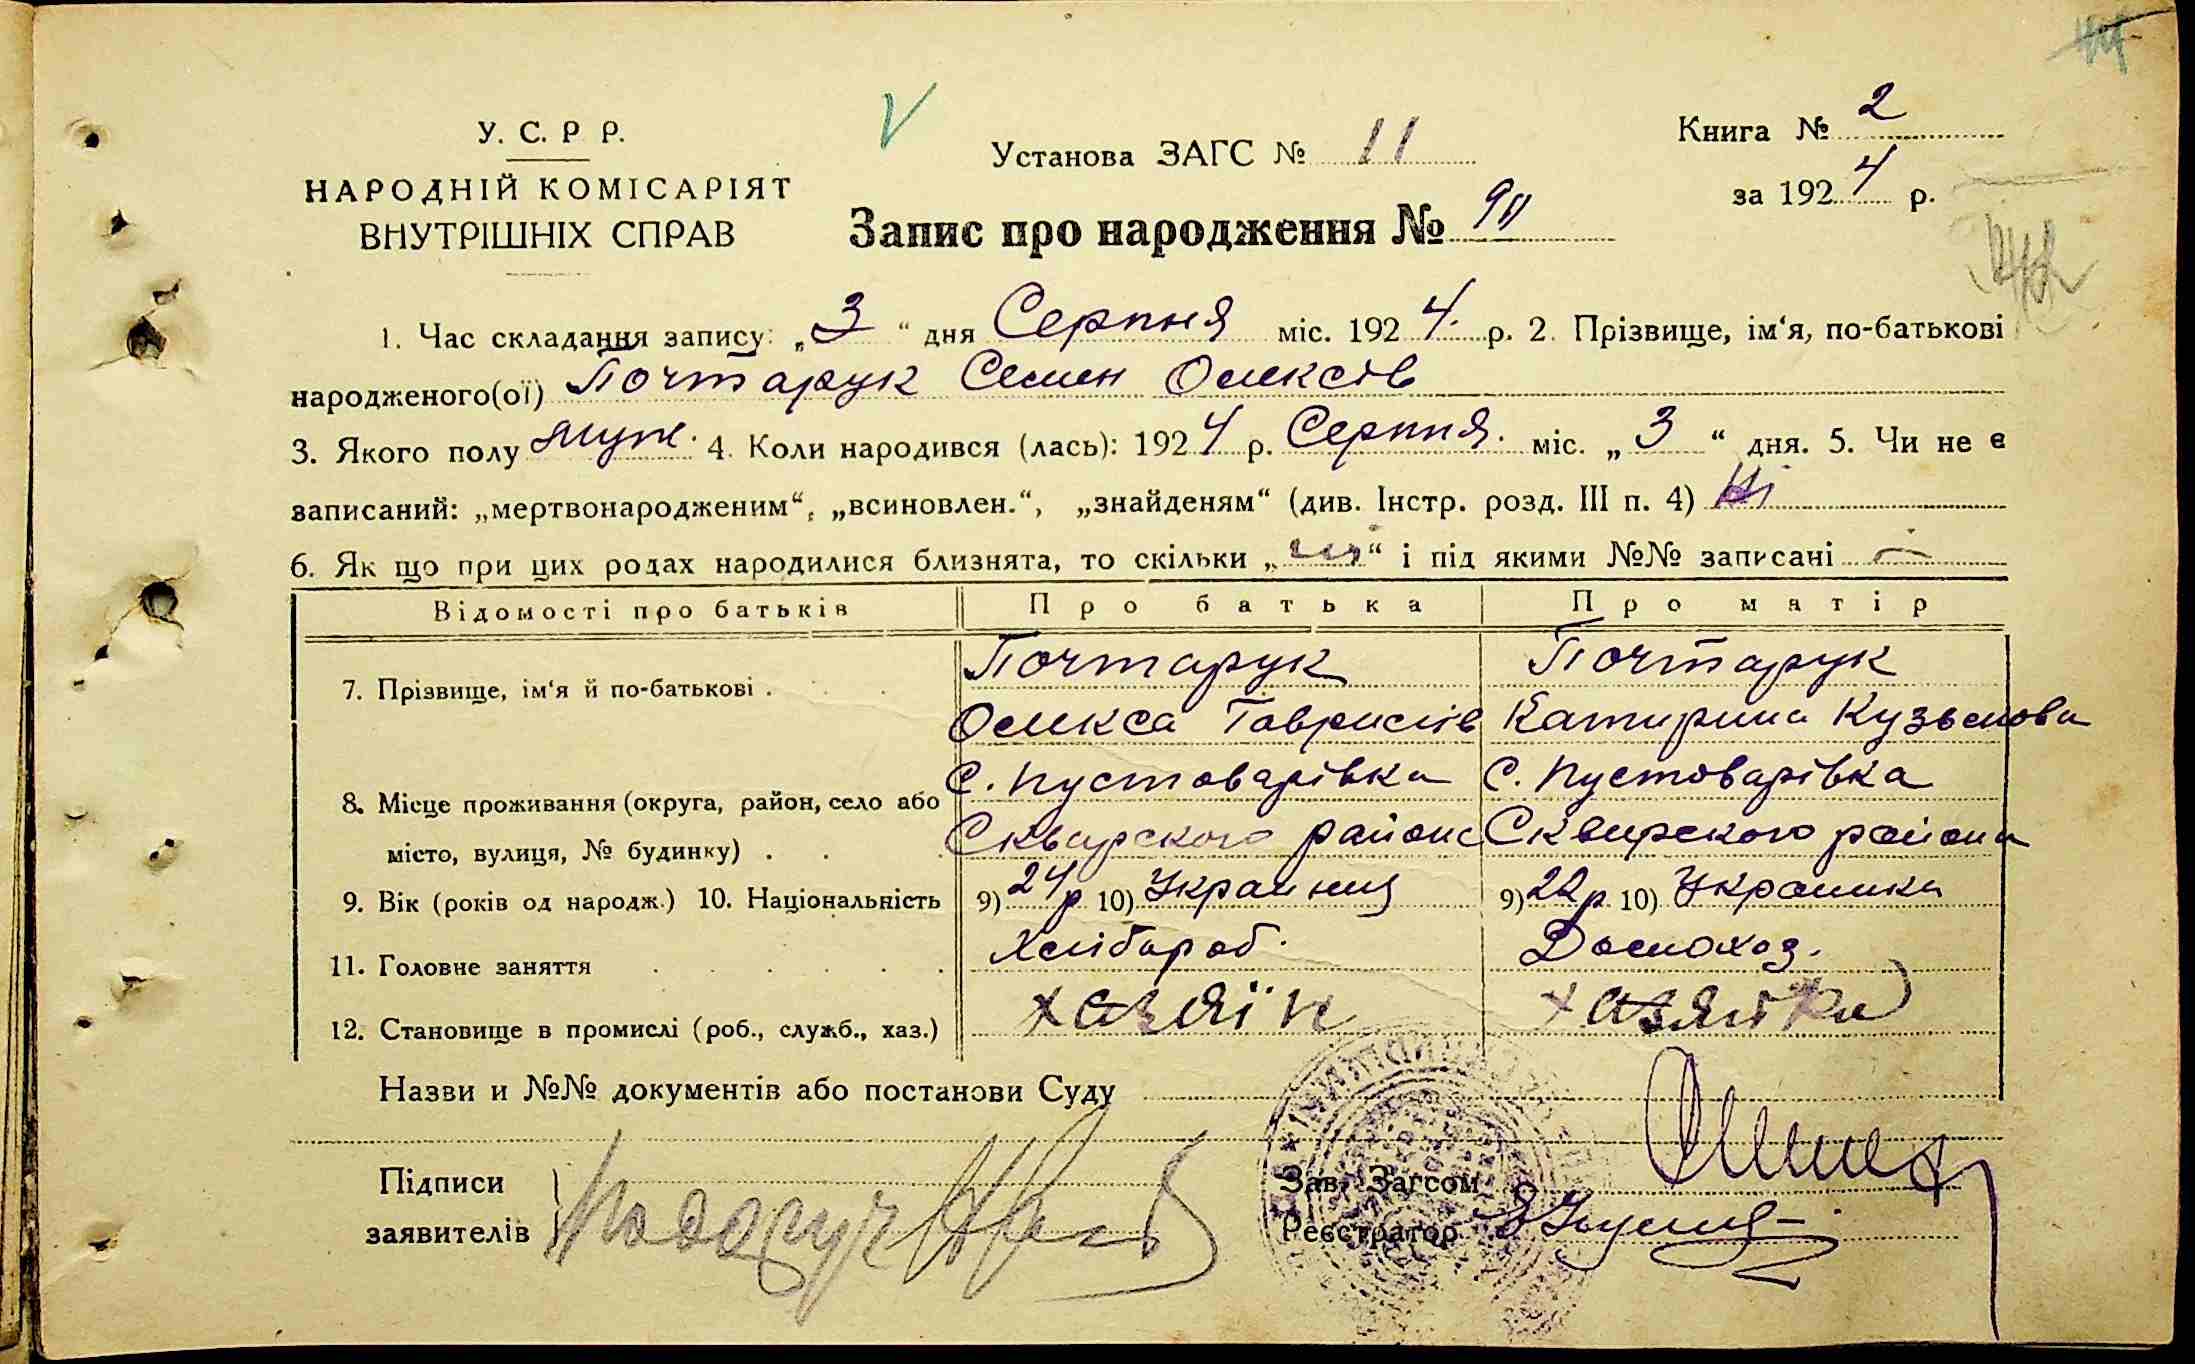 У. С. Р Р.
НАРОДНІЙ КОМІСАРІЯТ
ВНУТРІШНІХ СПРАВ
Установа ЗАГС № 11
Книга № 2
за 1924 р.
Запис про народження № 90
1. Час складання запису: „3“ дня Серпня міс. 1924. р. 2. Прізвище, ім‘я, по-батькові
народженого(ої) Почтарук Семен Олексів
3. Якого полу муж. 4. Коли народився (лась): 1924 р. Серпня. міс. „3“ дня. 5. Чи не є
записаний: „мертвонародженим“, „всиновлен.“, „знайденям“ (див. Інстр. розд. III п. 4) Ні
6. Як що при цих родах народилися близнята, то скільки „ “ і під якими №№ записані —
Відомості про батьків Про батька Про матір
7. Прізвище, ім‘я й по-батькові . Почтарук Почтарук
Олекса Гаврилів Катирина Кузьмова
8. Місце проживання (округа, район, село або С. Пустоварівка С. Пустоварівка
місто, вулиця, № будинку) . Сквирского района Сквирского района
9. Вік (років од народж.) 10. Національність 9) 24р 10) Украинец 9) 22р 10) Украинка
11. Головне заняття Хлібороб. Домохоз.
12. Становище в промислі (роб., служб., хаз.) хазяїн хазяйка
Назви и №№ документів або постанови Суду
Підписи
заявителів
Зав. Загсом
Реєстратор